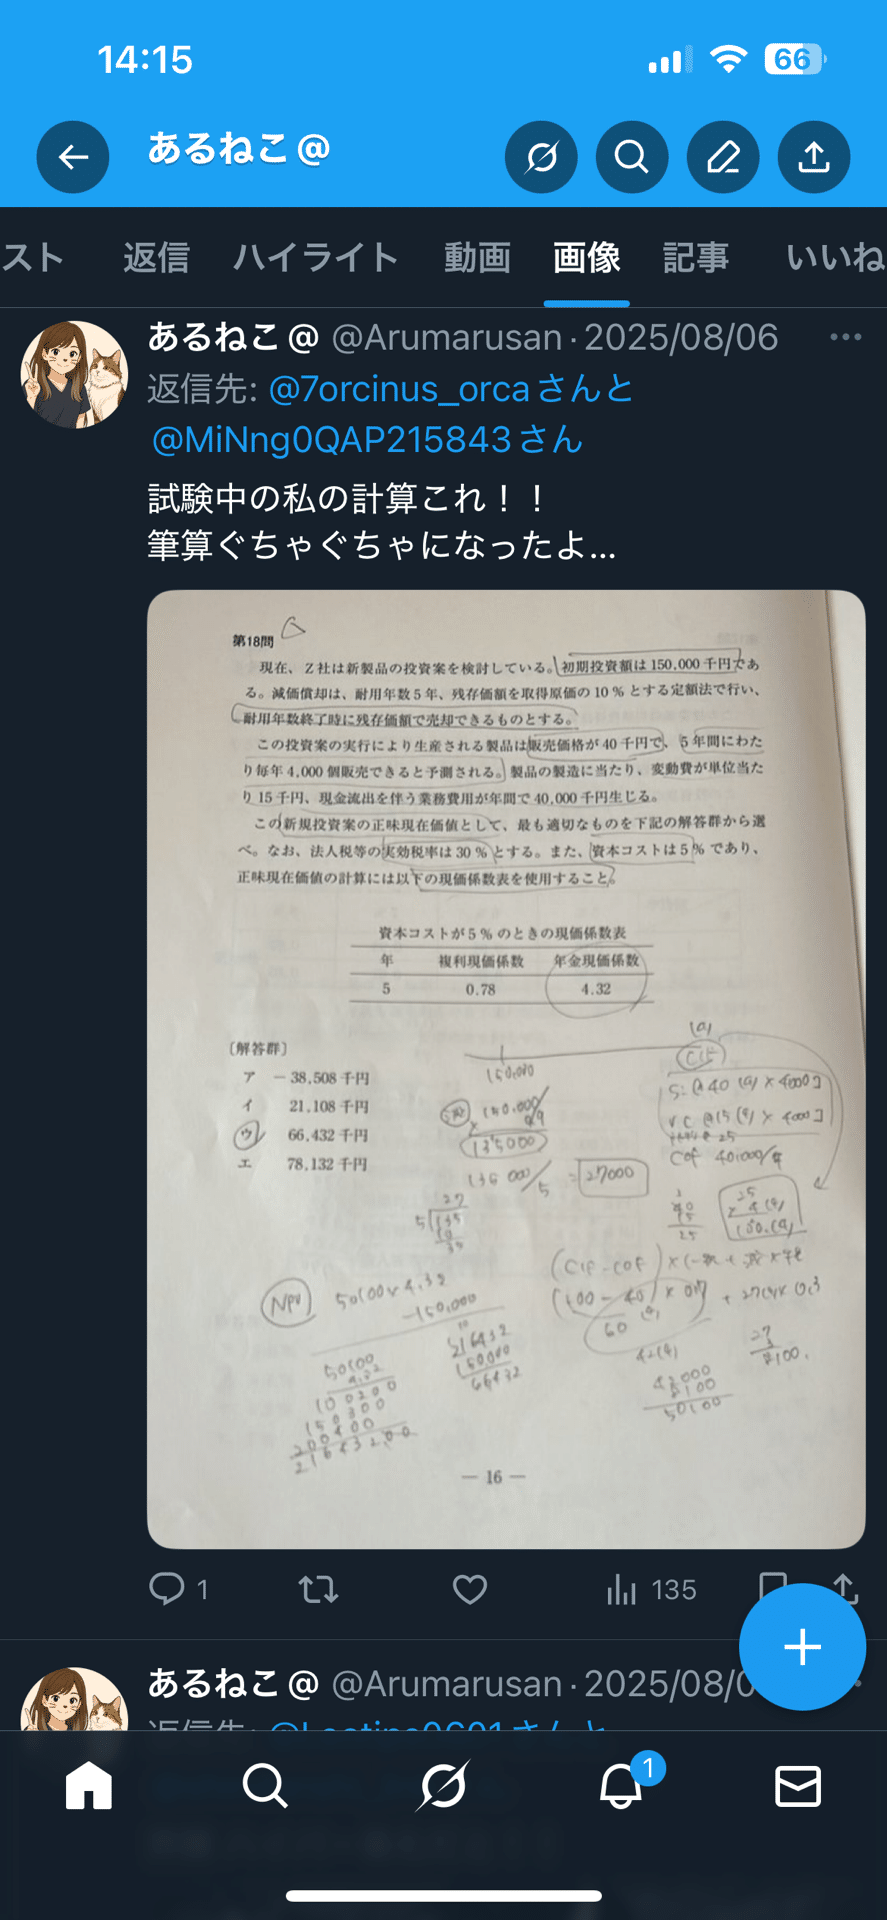 14:15
66
あるねこ@
スト 返信 ハイライト 動画 画像 記事 いいね
あるねこ@ @Arumarusan · 2025/08/06
返信先: @7orcinus_orcaさんと
@MiNng0QAP215843さん
試験中の私の計算これ！！
筆算ぐちゃぐちゃになったよ...
第18問
現在、Z社は新製品の投資案を検討している。初期投資額は150,000千円であ
る。減価償却は、耐用年数5年、残存価額を取得原価の10％とする定額法で行い、
耐用年数終了時に残存価額で売却できるものとする。
この投資案の実行により生産される製品は販売価格が40千円で、5年間にわた
り毎年4,000個販売できると予測される。製品の製造に当たり、変動費が単位当た
り15千円、現金流出を伴う業務費用が年間で40,000千円生じる。
この新規投資案の正味現在価値として、最も適切なものを下記の解答群から選
べ。なお、法人税等の実効税率は30％とする。また、資本コストは5％であり、
正味現在価値の計算には以下の現価係数表を使用すること。
資本コストが5％のときの現価係数表
年 複利現価係数 年金現価係数
5 0.78 4.32
〔解答群〕
ア －38,508千円
イ 21,108千円
ウ 66,432千円
エ 78,132千円
150,000
CIF
S: @40 (q) × 4000]
VC @15 (q) × 4000]
COF 40,000/年
150,000
0.9
135000
135000/5 = 27000
27
5 135
10
35
25
× 4 (q)
100,(q)
(CIF-COF)
(100 - 40) × 0.7 + 27(q) × 0.3
60 (q)
42(q)
27
3
8100.
42000
8100
50100
NPV 50100 × 4.32
-150,000
216432
150000
66432
50100
4.32
100200
150300
200400
21643200
— 16 —
1
135
あるねこ@ @Arumarusan · 2025/08/0
1